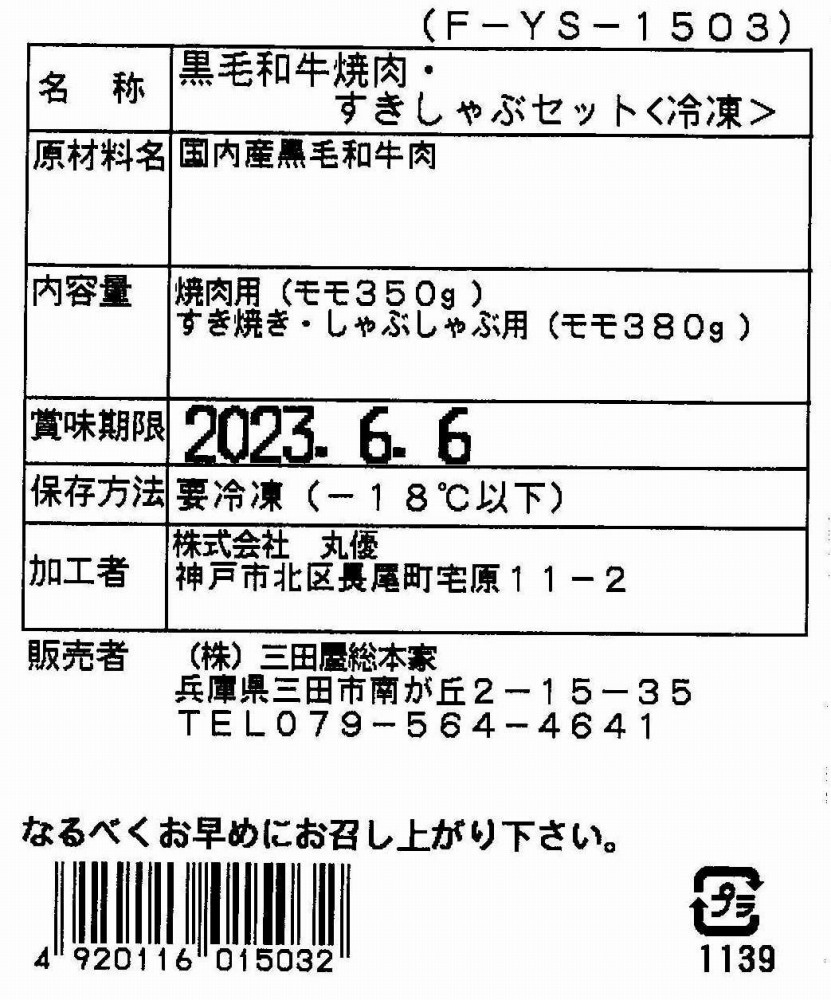 （Ｆ－ＹＳ－１５０３）
名　称
黒毛和牛焼肉・
すきしゃぶセット＜冷凍＞
原材料名
国内産黒毛和牛肉
内容量
焼肉用（モモ３５０ｇ）
すき焼き・しゃぶしゃぶ用（モモ３８０ｇ）
賞味期限
2023. 6. 6
保存方法
要冷凍（－１８℃以下）
加工者
株式会社　丸優
神戸市北区長尾町宅原１１－２
販売者
（株）三田屋総本家
兵庫県三田市南が丘２－１５－３５
ＴＥＬ０７９－５６４－４６４１
なるべくお早めにお召し上がり下さい。
4 920116 015032
プラ
1139